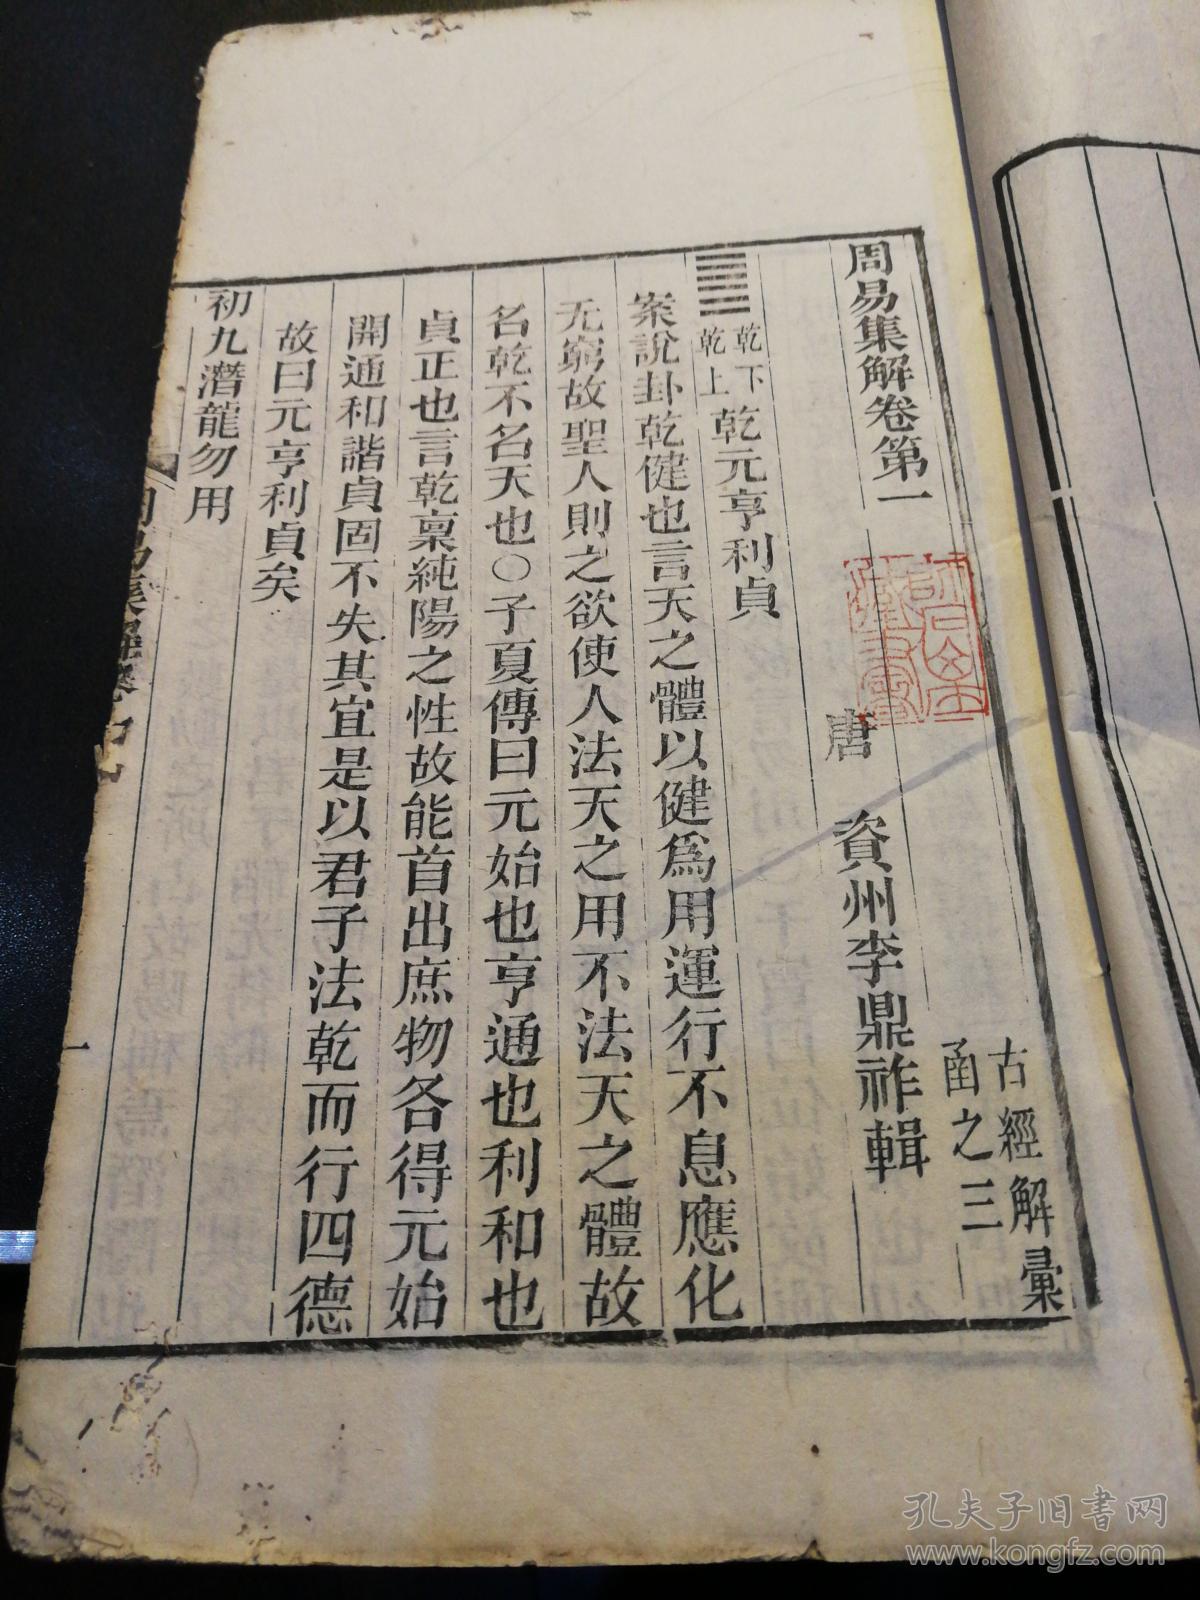 周易集解卷第一
古經解彙
函之三
唐 資州李鼎祚輯
乾下
乾上
乾元亨利貞
案說卦乾健也言天之體以健爲用運行不息應化
无窮故聖人則之欲使人法天之用不法天之體故
名乾不名天也○子夏傳曰元始也亨通也利和也
貞正也言乾稟純陽之性故能首出庶物各得元始
開通和諧貞固不失其宜是以君子法乾而行四德
故曰元亨利貞矣
初九潛龍勿用
周易集解卷
一
孔夫子旧书网
www.kongfz.com